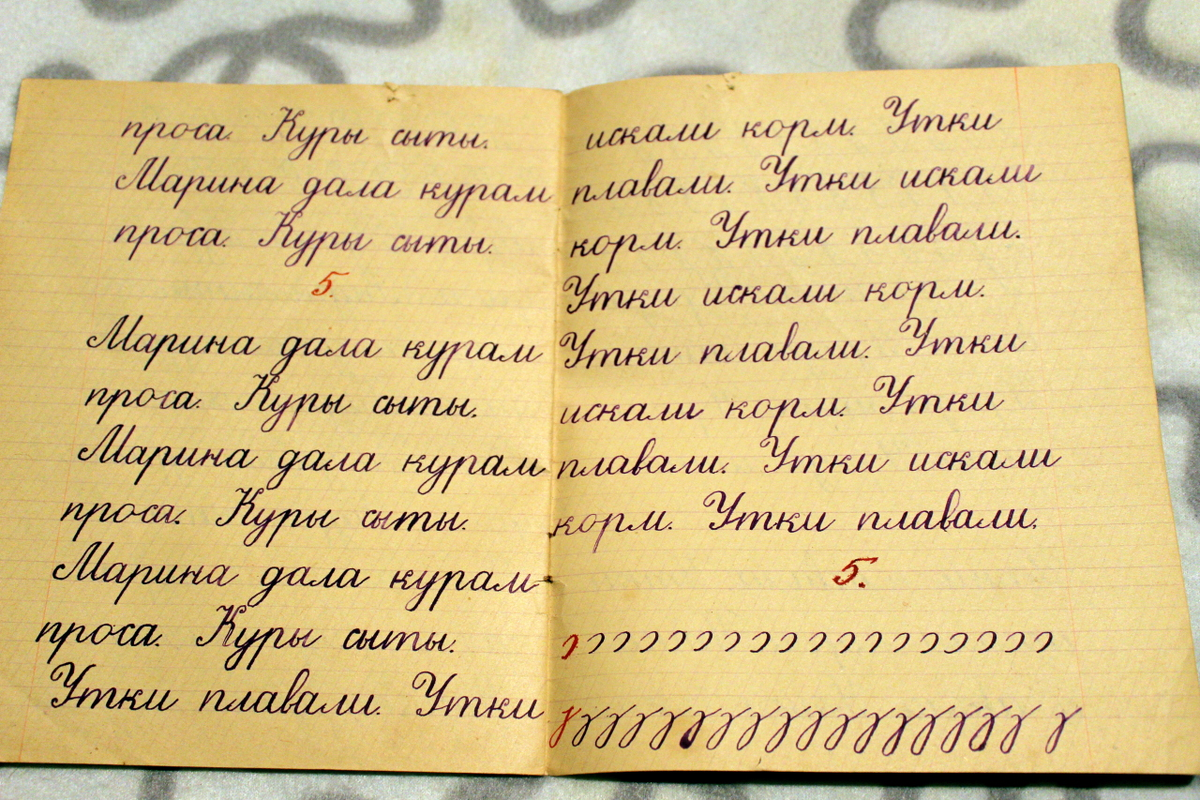 проса. Куры сыты.
Марина дала курам
проса. Куры сыты.
5.
Марина дала курам
проса. Куры сыты.
Марина дала курам
проса. Куры сыты.
Марина дала курам
проса. Куры сыты.
Утки плавали. Утки
искали корм. Утки
плавали. Утки искали
корм. Утки плавали.
Утки искали корм.
Утки плавали. Утки
искали корм. Утки
плавали. Утки искали
корм. Утки плавали.
5.